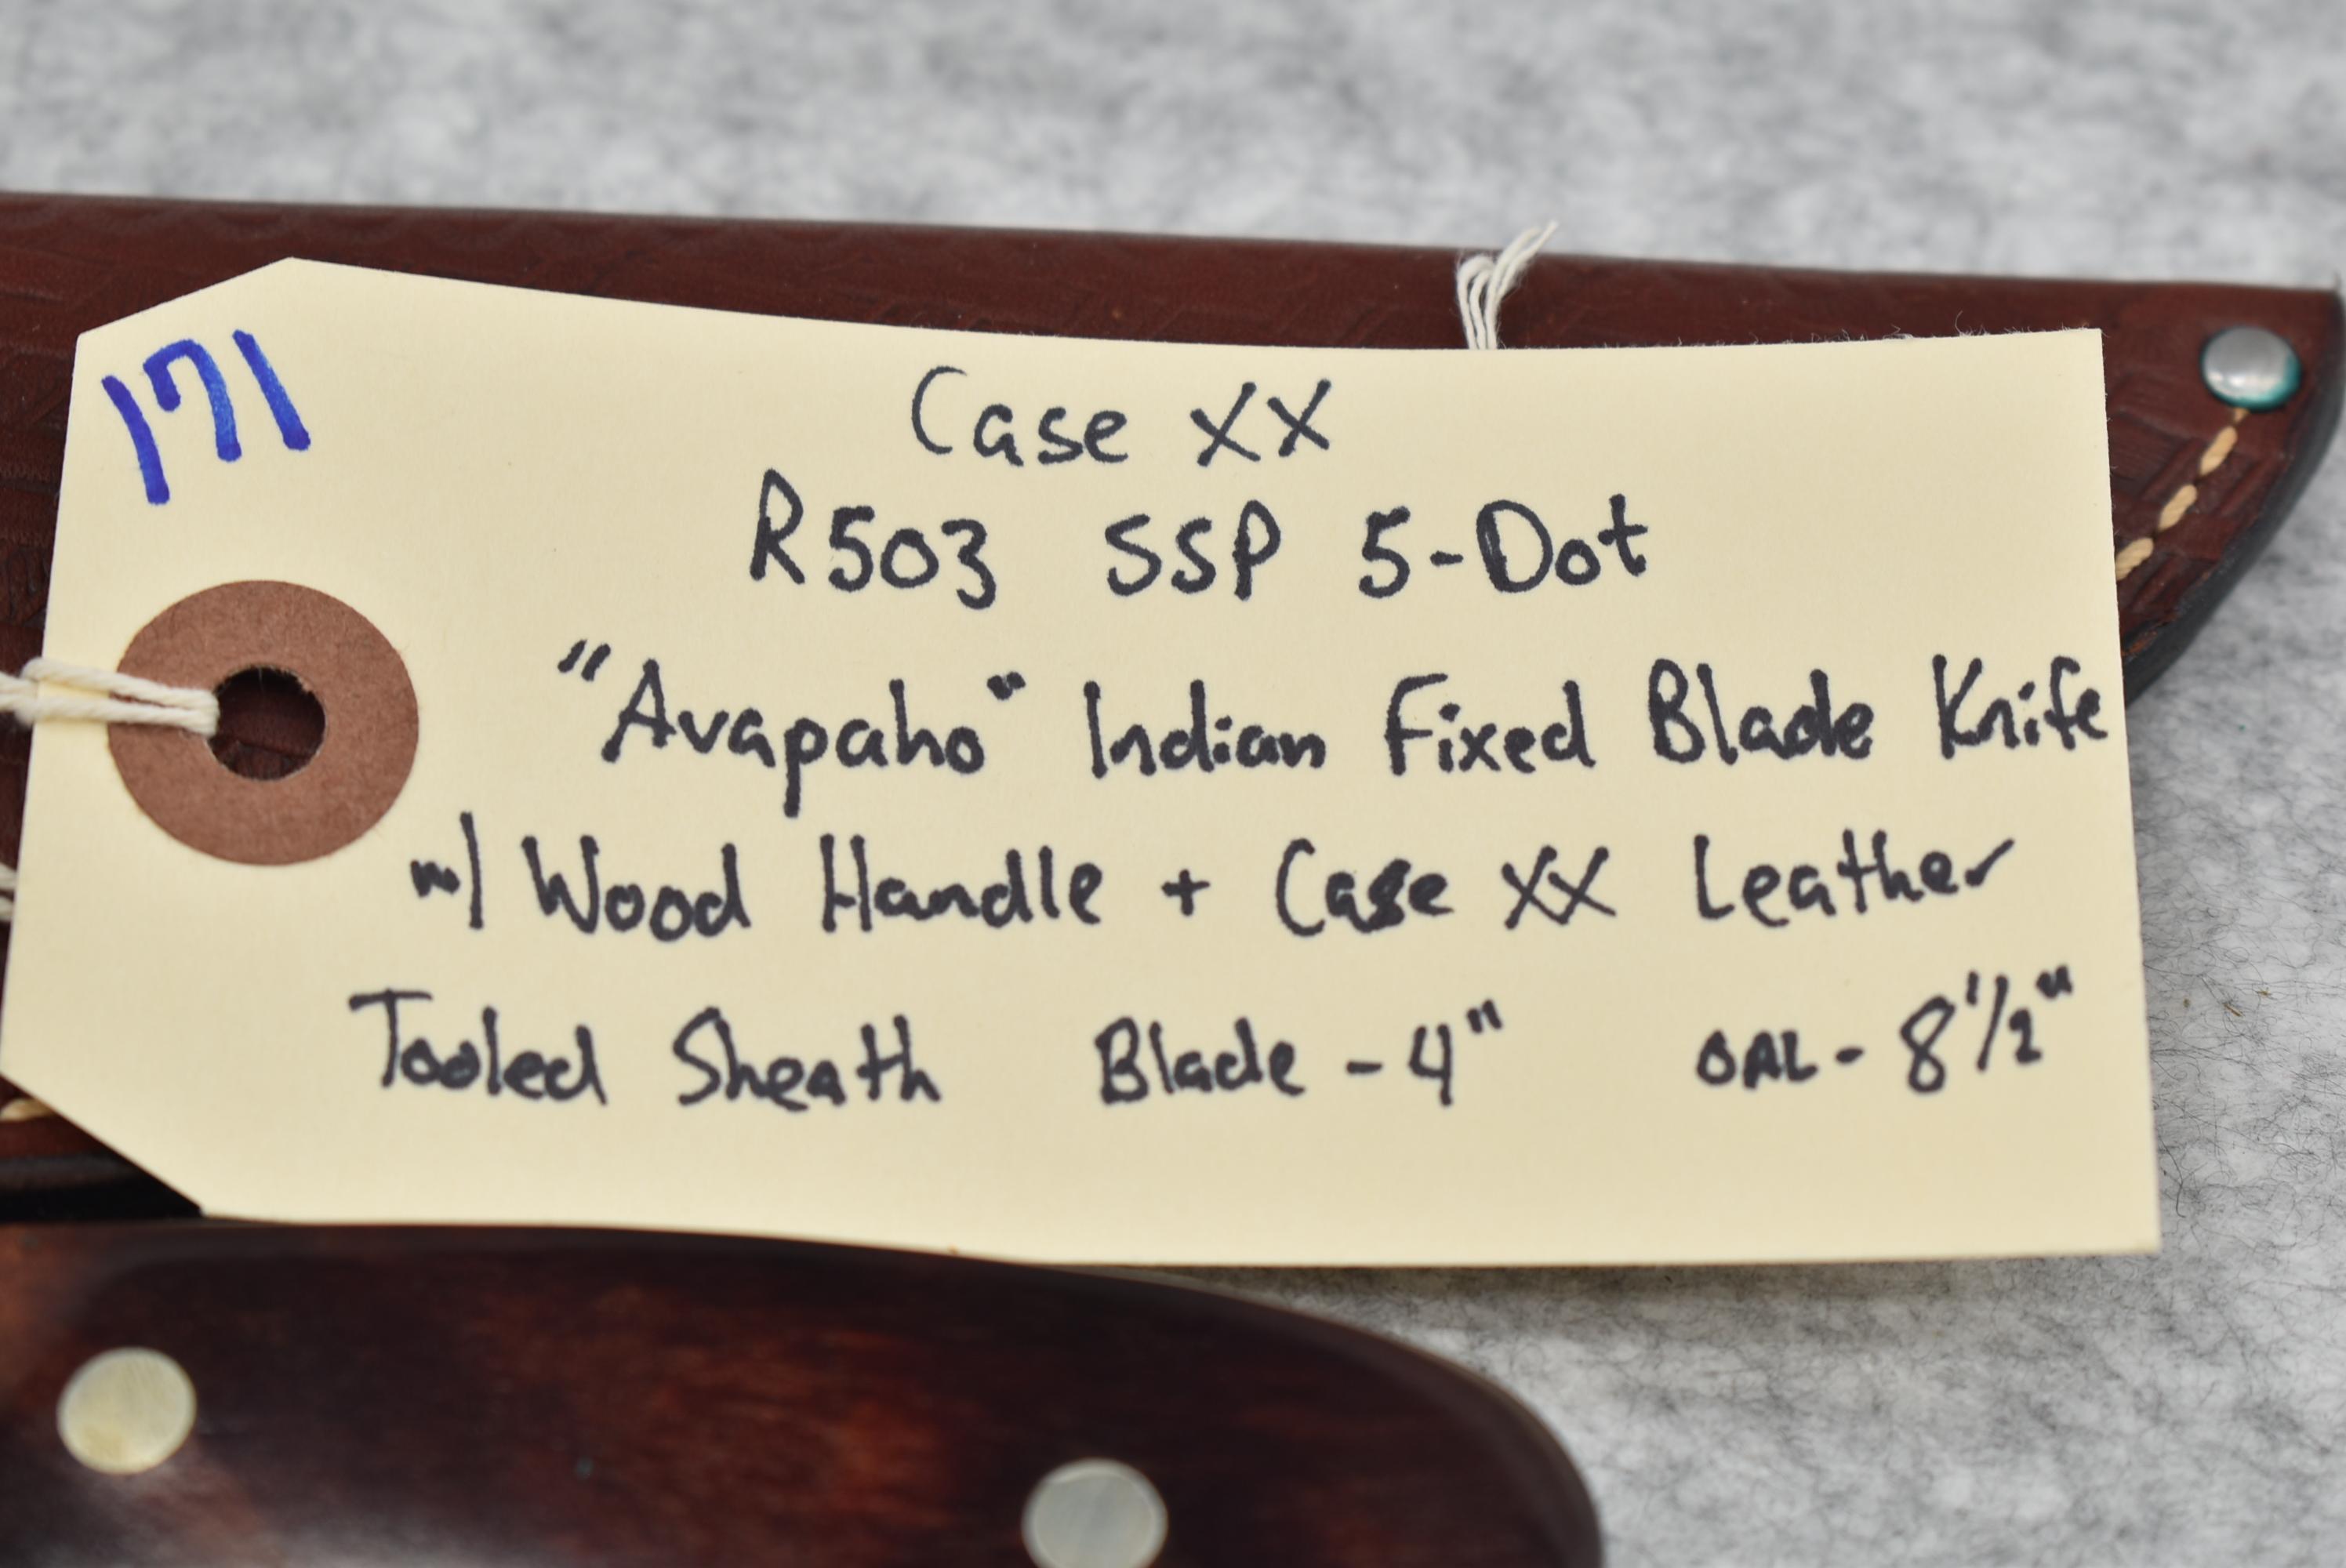 171
Case XX
R503 SSP 5-Dot
"Arapaho" Indian Fixed Blade Knife
w/ Wood Handle + Case XX Leather
Tooled Sheath Blade - 4" OAL - 8 1/2"